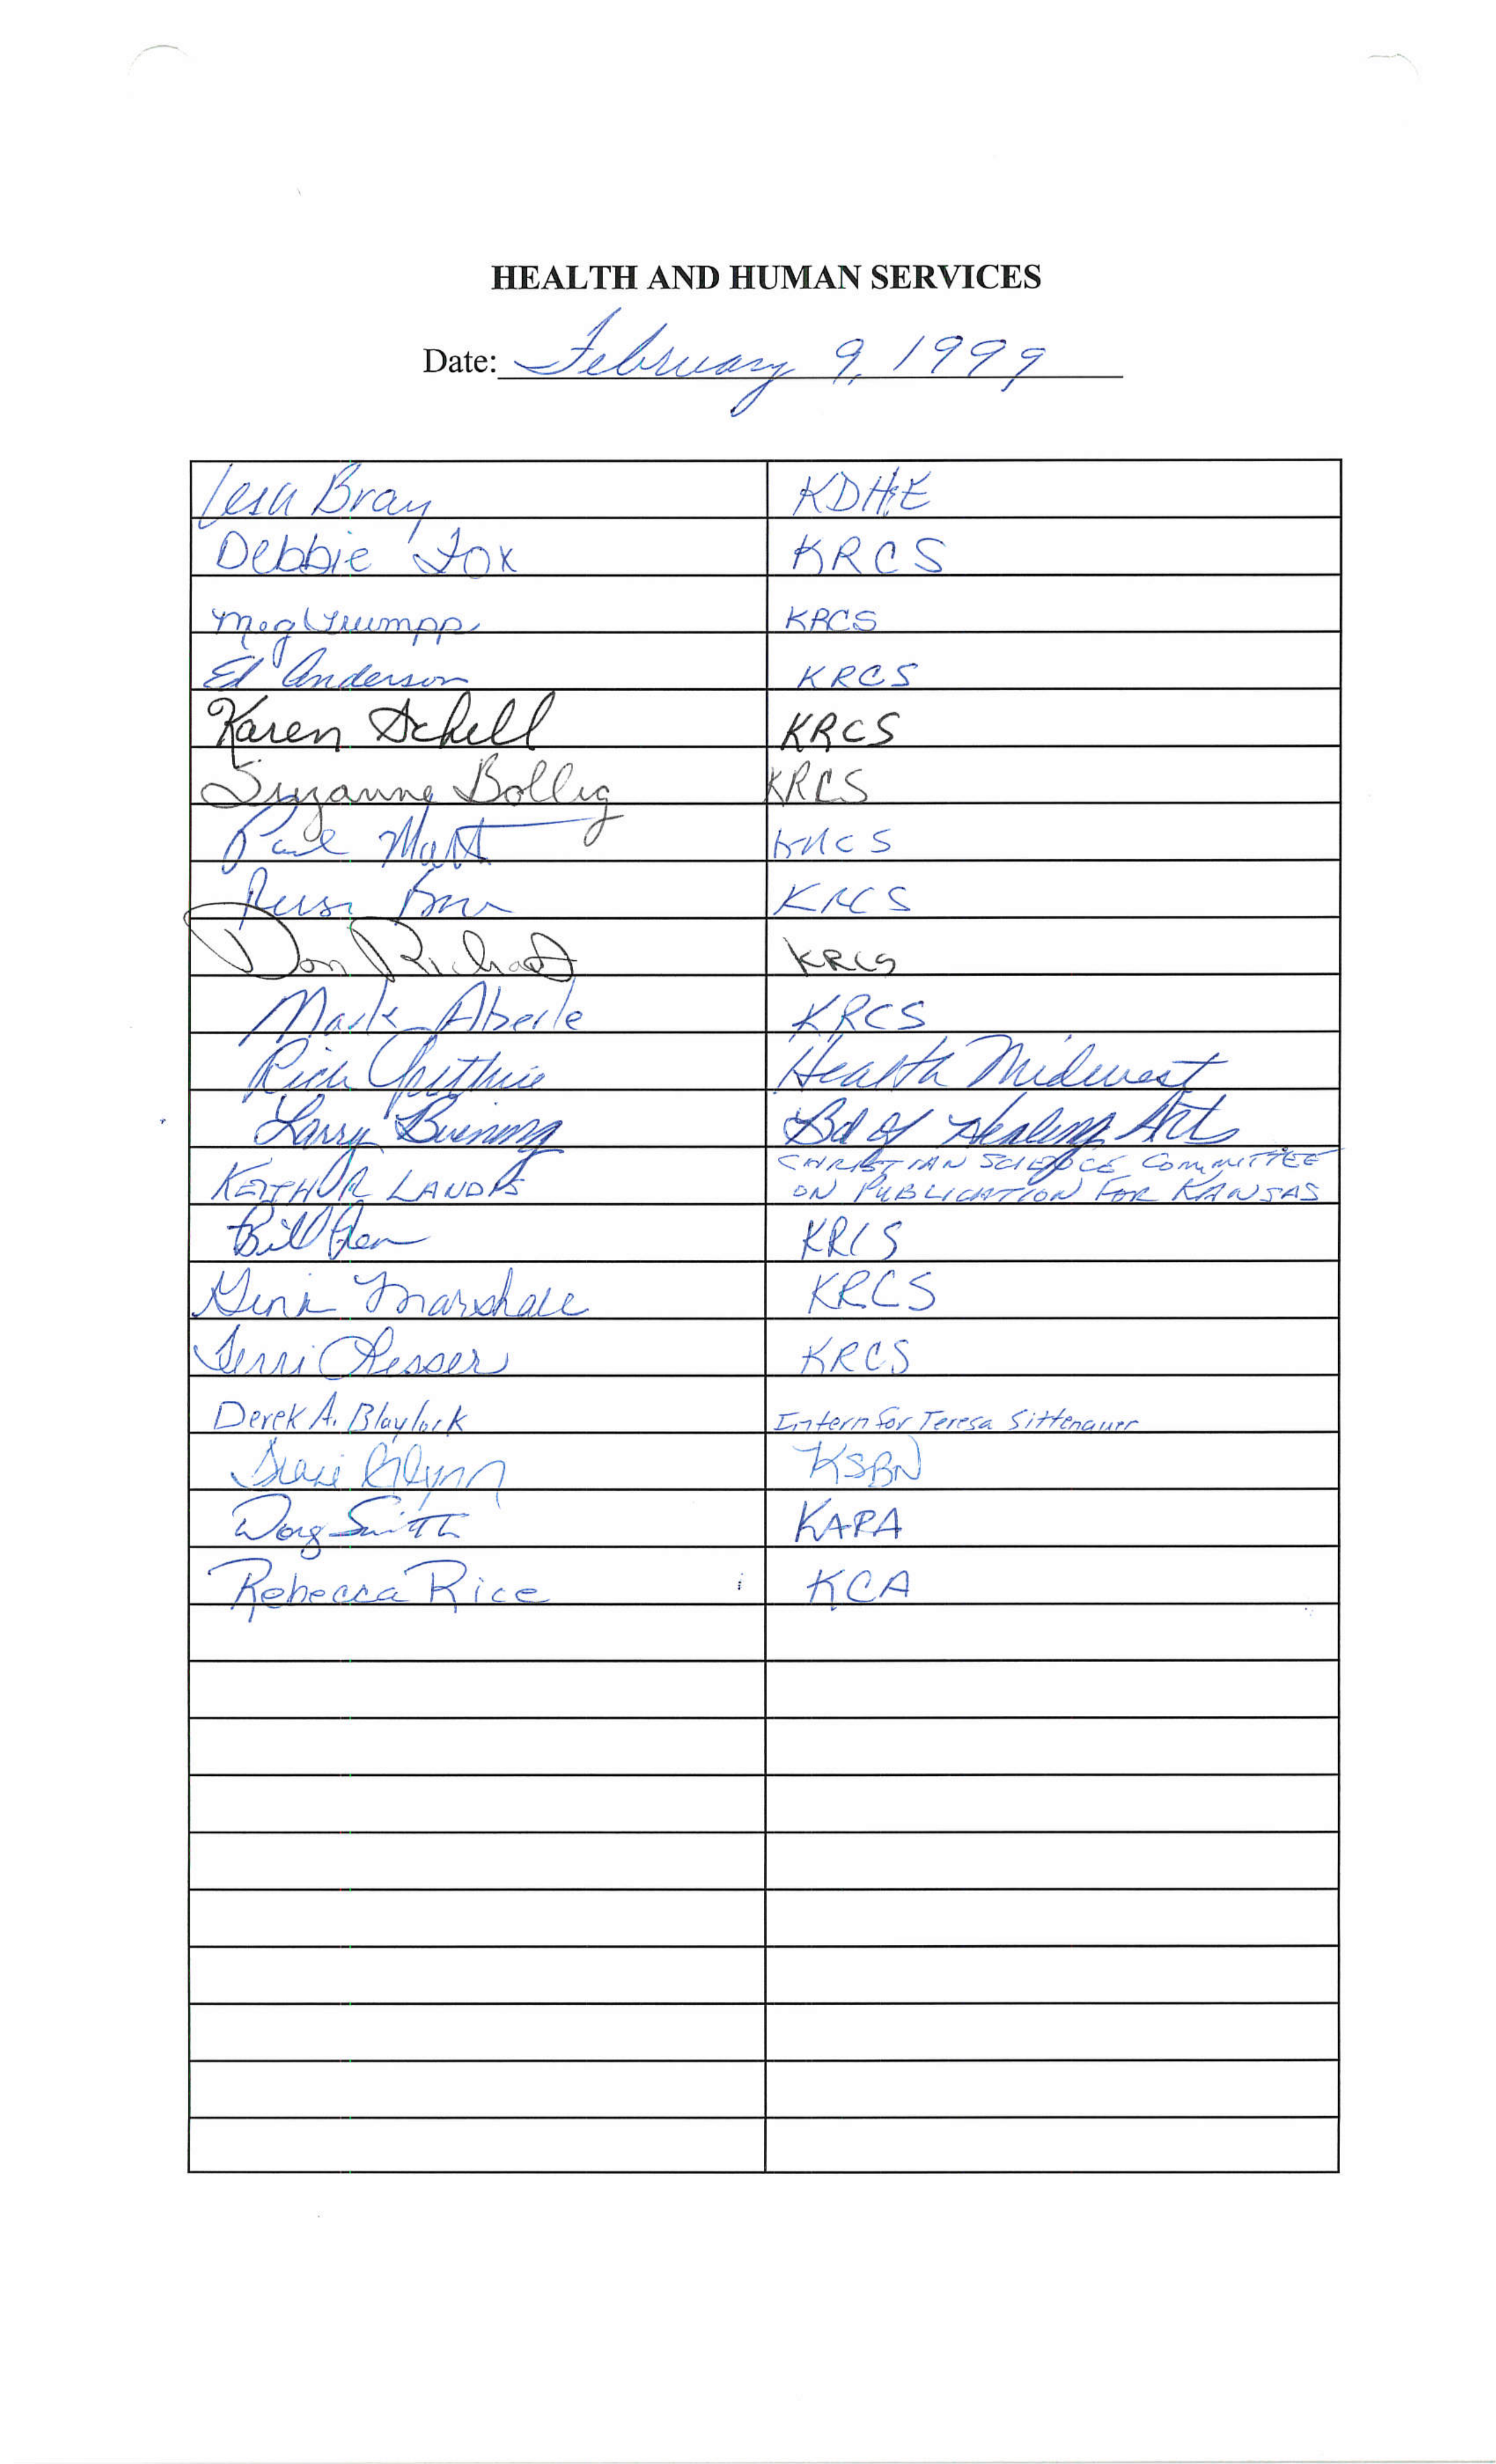 HEALTH AND HUMAN SERVICES
Date: February 9, 1999
Lesa Bray KDHE
Debbie Fox KRCS
Meg Trumpp KRCS
Ed Anderson KRCS
Karen Schell KRCS
Suzanne Bollig KRCS
Paul KRCS
KRCS
Don Richards KRCS
Mark Aberle KRCS
Rich Guthrie Health Midwest
Larry Buening Bd of Healing Arts
KEITH R LANDIS CHRISTIAN SCIENCE COMMITTEE
ON PUBLICATION FOR KANSAS
Bill KRCS
Marshall KRCS
Terri KRCS
Derek A. Blaylock Intern for Teresa Sittenauer
Glynn KSBN
Doug Smith KAPA
Rebecca Rice KCA